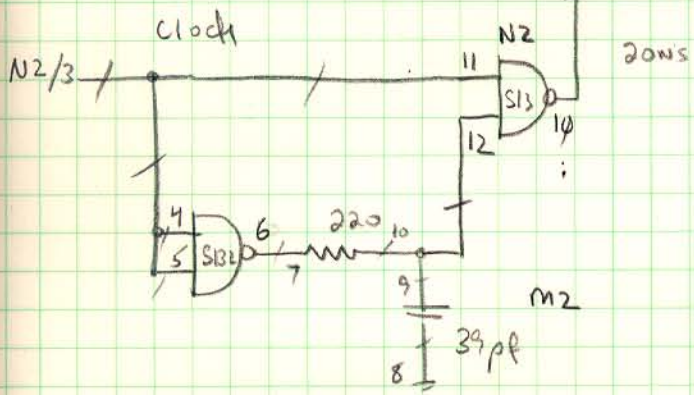 Clock
N2
N2/3
11
20ns
S13
12
4
5
S132
6
220
10
7
9
M2
39pf
8